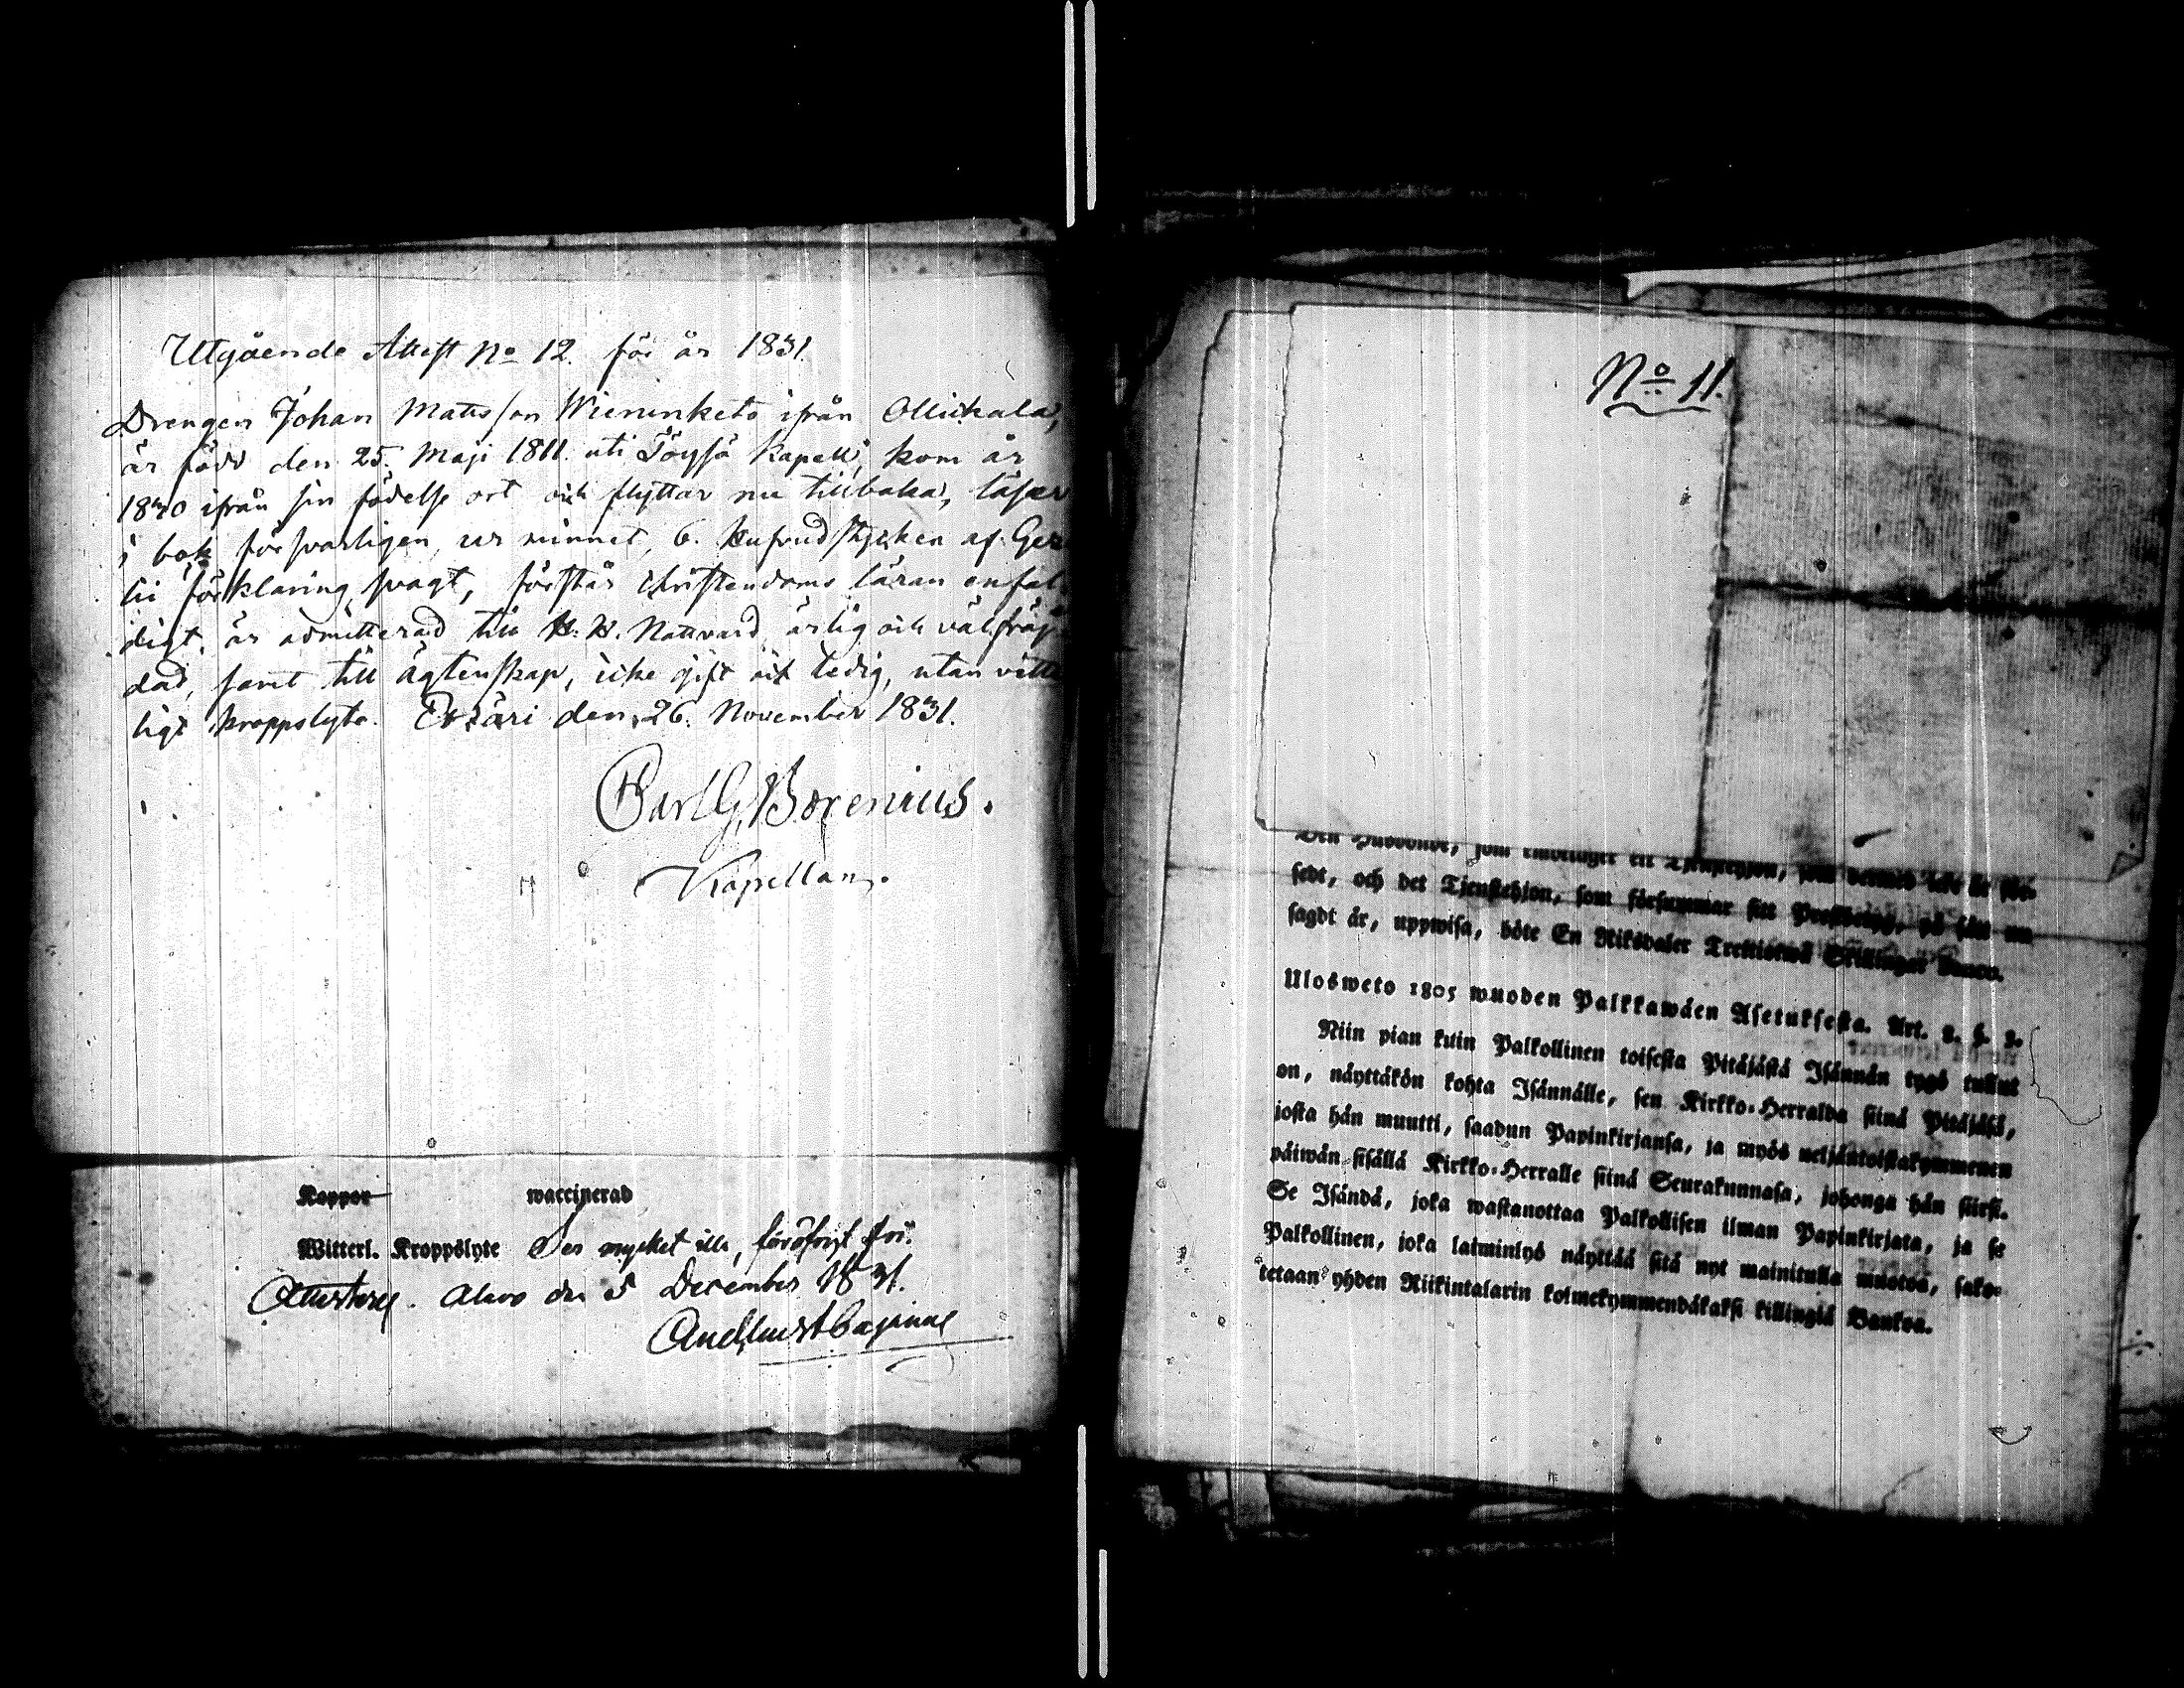 Utgående Attest No 12. för år 1831.
Drengen Johan Matsson Wieninketo ifrån Ollikala,
är född den 25. Maji 1811. uti Töysä Kapell, kom år
1830 ifrån sin födelse ort och flyttar nu tillbaka, läser
i bok försvarligen, ur minnet, 6. hufvudstycken af Gez
lii förklaring svagt, förstår Christendoms läran enfal
digt, är admitterad till H. H. Nattvard, ärlig och välfräj
dad, samt till ägtenskap, icke gift och ledig, utan vitter
ligt kroppslyte. Etzäri den 26. November 1831.
Carl G. Borenius.
Kapellan.
Koppor waccinerad
Witterl. Kroppslyte Ser mycket illa, föröfrigt fri.
Attesterg. Alavo den 5 December 1831.
Cajanus
No 11.
Den Husbonde, som en Tjenstehjon, som
sedt, och det Tjenstehjon, som försummar sitt Prestbetyg, på sätt nu
sagdt är, uppwisa, böte En Riksdaler Trettiotwå Skillingar Banco.
Ulosweto 1805 wuoden Palkkawäen Asetuksesta. Art. 2. §. 3.
Niin pian kuin Palkollinen toisesta Pitäjästä Isännän tygö tullut
on, näyttäkön kohta Isännälle, sen Kirkko-Herralda siinä Pitäjäsä,
josta hän muutti, saadun Papinkirjansa, ja myös neljäntoistakymmenen
päiwän sisällä Kirkko-Herralle siinä Seurakunnasa, johonga hän siirsi.
Se Isändä, joka wastanottaa Palkollisen ilman Papinkirjata, ja se
Palkollinen, joka laiminlyö näyttää sitä nyt mainitulla muotoa, sako-
tetaan yhden Riikintalarin kolmekymmendäkaksi killingiä Bankoa.